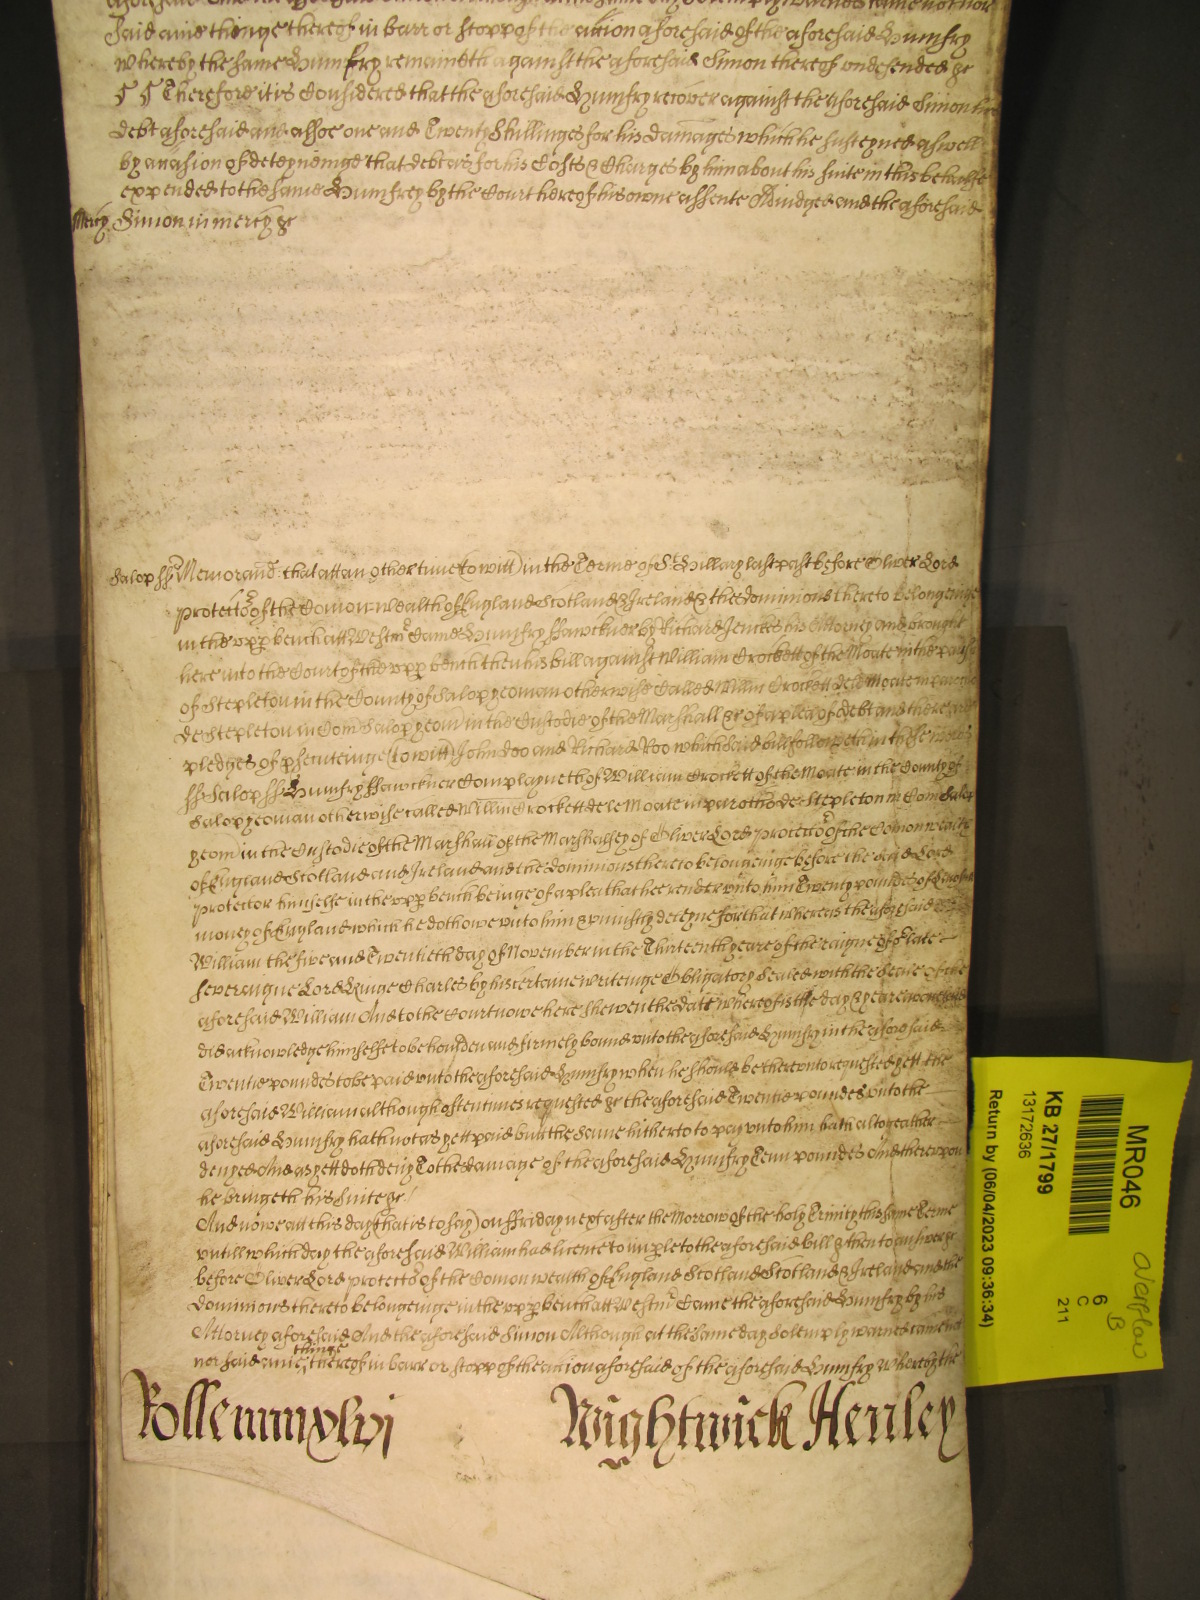 said anie thinge thereof in barr or stopp of the action aforesaid of the aforesaid Humfry
whereby the same Humfry remaineth against the aforesaid Simon thereof undefended &c
Therefore it is Considered that the aforesaid Humfry recover against the aforesaid Simon his
debt aforesaid and allsoe one and Twenty Shillinges for his damages which he susteyned aswell
by occasion of deteyneinge that debt as for his Costs & Charges by him about his suite in this behalfe
expended to the same Humfrey by the Court here of his owne assente Adiudged and the aforesaid
Mercy Simon in mercy &c
Salop ss Memorand that att an other time (to witt) in the Terme of St Hillary last past before Oliver Lord
Protector of the Comonwealth of England Scotland & Ireland & the dominions thereto belongeinge
in the upp bench att Westmr Came Humfry ffawckner by Richard Jenckes his Attorney and brought
here into the Court of the upp bench then his bill against William Crockett of the Moate in the parish
of Stepleton in the County of Salop yeoman otherwise Called Willm Crockett de le Moate in parochia
de Stepleton in Com Salop yeom in the Custodie of the Marshall &c of a plea of debt and there are
pledges of psecuteinge (to witt) John Doo and Richard Roo which said bill followeth in these words
ss Salop ss Humfry ffawckner Complayneth of William Crockett of the Moate in the County of
Salop yeoman otherwise called Willm Crockett de le Moate in parochia de Stepleton in Com Salop
yeom in the Custodie of the Marshall of the Marshalsey of Oliver Lord Protector of the Comonwealth
of England Scotland and Ireland and the dominions thereto belongeinge before the said Lord
Protector himselfe in the upp bench beinge of a plea that hee render unto him Twenty poundes of lawfull
money of England which he doth owe unto him & uniustly deteyne for that whereas the aforesaid
William the five and Twentieth day of November in the Thirteenth yeare of the raigne of or late
Severaigne Lord Kinge Charles by his certaine writeinge Obligatory Sealed with the Seale of the
aforesaid William And to the Court nowe here shewen the date whereof is the same day & yeare
did acknowledge himselfe to be houlden and firmely bound unto the aforesaid Humfry in the aforesaid
Twentie poundes to be paid unto the aforesaid Humfry when he should be thereunto requested yett the
aforesaid William although oftentimes requested &c the aforesaid Twentie poundes unto the
aforesaid Humfry hath not as yett paid but the same hitherto to pay unto him hath altogeather
denyed And as yett doth deny To the damage of the aforesaid Humfry Tenn poundes And thereupon
he bringeth his Suite &c
And nowe att this day (that is to say) on ffriday next after the Morrow of the holy Trinity this same Terme
untill which day the aforesaid William had licence to imple to the aforesaid bill & then to answer &c
before Oliver Lord protector of the Comonwealth of England Scotland Scotland & Ireland and the
dominions thereto belongeinge in the upp bench att Westmr Came the aforesaid Humfry by his
Attorney aforesaid And the aforesaid Simon Although at the same day solemply warned came not
nor said anie thinge thereof in barr or stopp of the action aforesaid of the aforesaid Humfry whereby the
Rolle mmxlvj Wightwick Henley
MR046
6
C
211
KB 27/1799
13172636
Return by (06/04/2023 09:36:34)